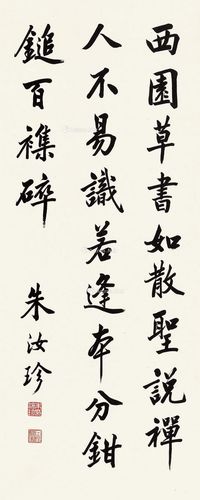 西園草書如散聖説禪
人不易識若逢本分鉗
鎚百襍碎
朱汝珍